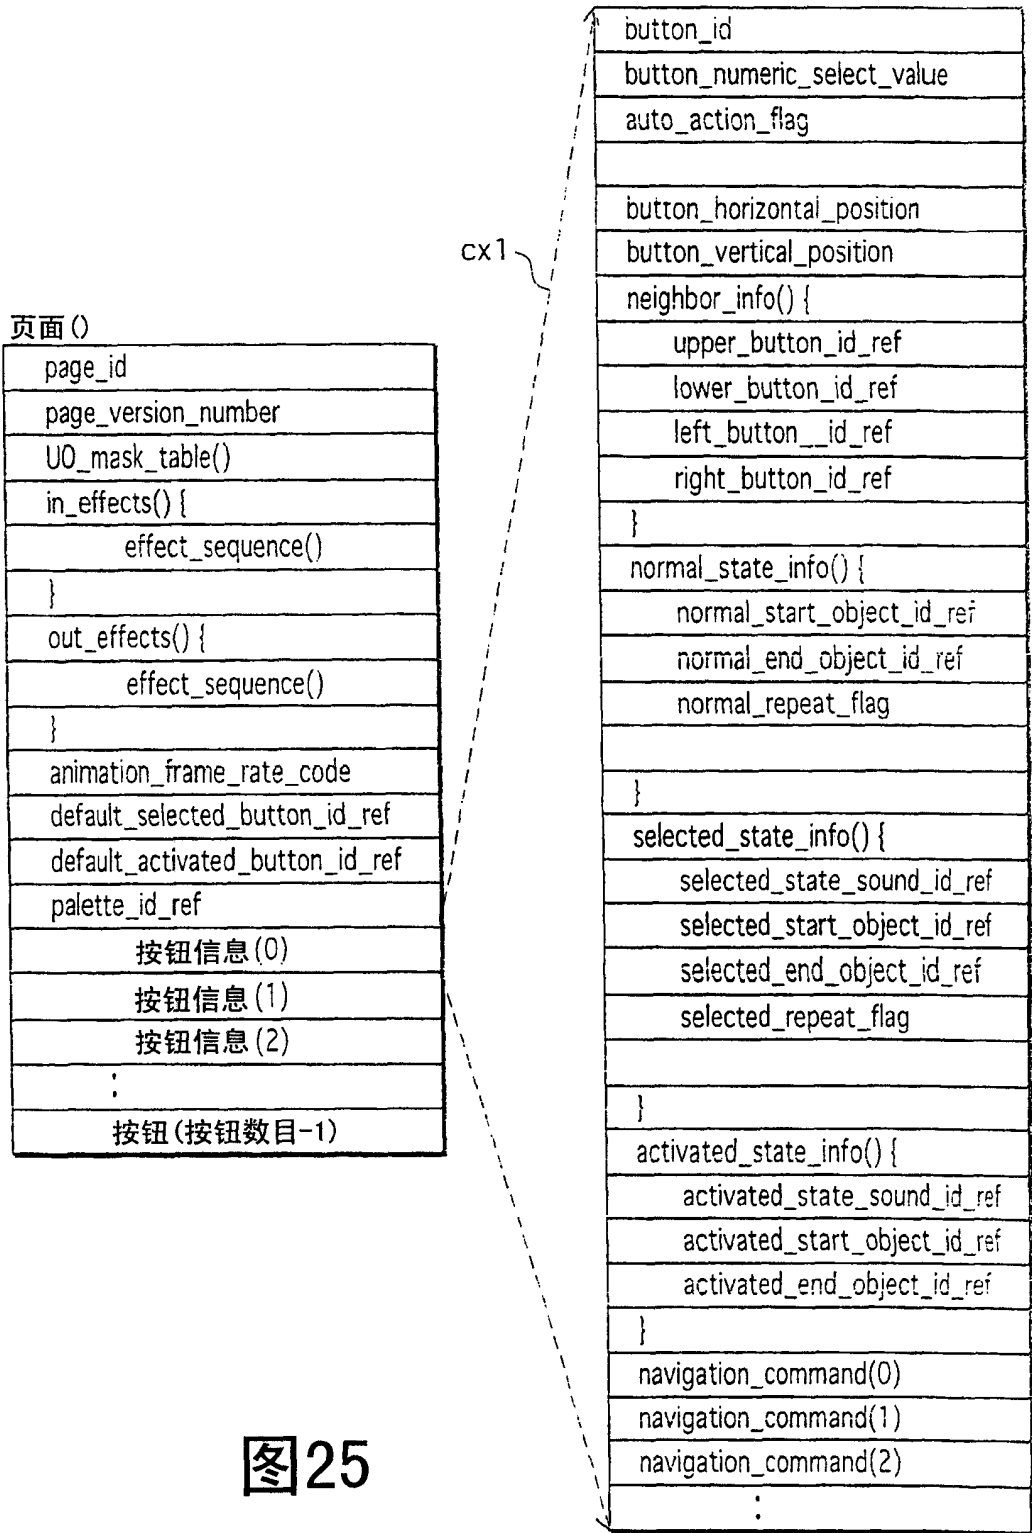 页面()
page_id
page_version_number
UO_mask_table()
in_effects() {
effect_sequence()
}
out_effects() {
effect_sequence()
}
animation_frame_rate_code
default_selected_button_id_ref
default_activated_button_id_ref
palette_id_ref
按钮信息(0)
按钮信息(1)
按钮信息(2)
:
按钮(按钮数目-1)
cx1
button_id
button_numeric_select_value
auto_action_flag
button_horizontal_position
button_vertical_position
neighbor_info() {
upper_button_id_ref
lower_button_id_ref
left_button__id_ref
right_button_id_ref
}
normal_state_info() {
normal_start_object_id_ref
normal_end_object_id_ref
normal_repeat_flag
}
selected_state_info() {
selected_state_sound_id_ref
selected_start_object_id_ref
selected_end_object_id_ref
selected_repeat_flag
}
activated_state_info() {
activated_state_sound_id_ref
activated_start_object_id_ref
activated_end_object_id_ref
}
navigation_command(0)
navigation_command(1)
navigation_command(2)
:
图25